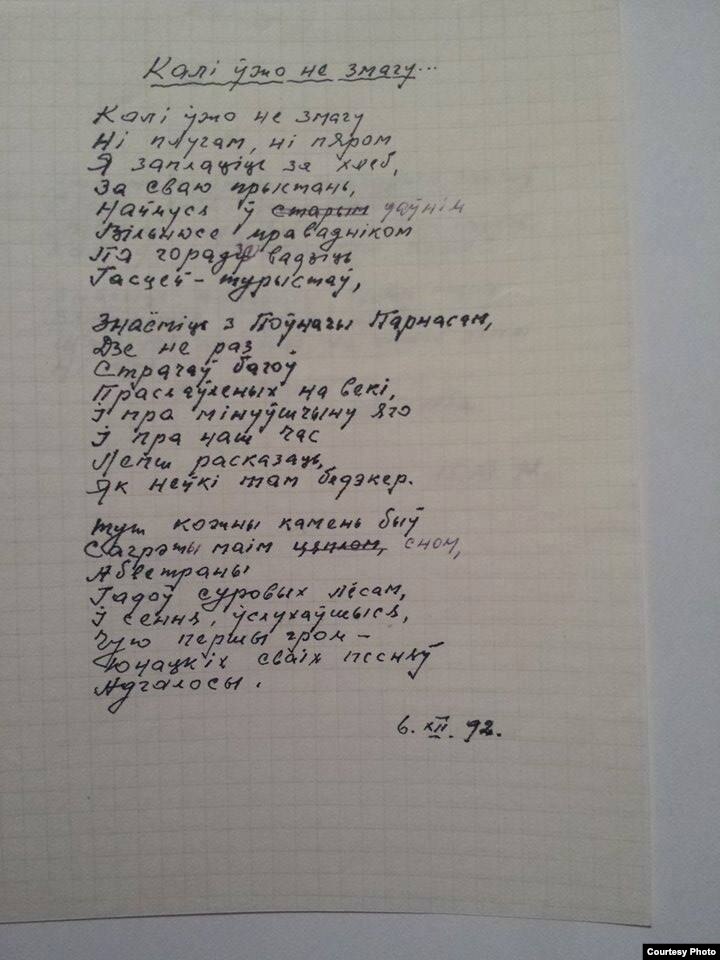 Калі ўжо не змагу...
Калі ўжо не змагу
Ні плугам, ні пяром
Я заплаціць за хлеб,
За сваю прыстань,
Наймуся ў старым даўнім
Вільнюсе праваднiком
Па горадзе вадзіць
Гасцей - турыстаў,
Знаёміць з Поўначы Парнасам,
Дзе не раз
Страчаў багоў
Праслаўленых на векі,
І пра мінуўшчыну яго
І пра наш час
Лепш расказаць,
Як нейкі там бедэкер.
Тут кожны камень быў
Сагрэты маім цяплом, сном,
Абветраны
Гадоў суровых лёсам,
І сення, ўслухаўшыся,
Чую першы гром -
Юнацкіх сваіх песняў
Адгалосы.
6. XII. 92.
Courtesy Photo